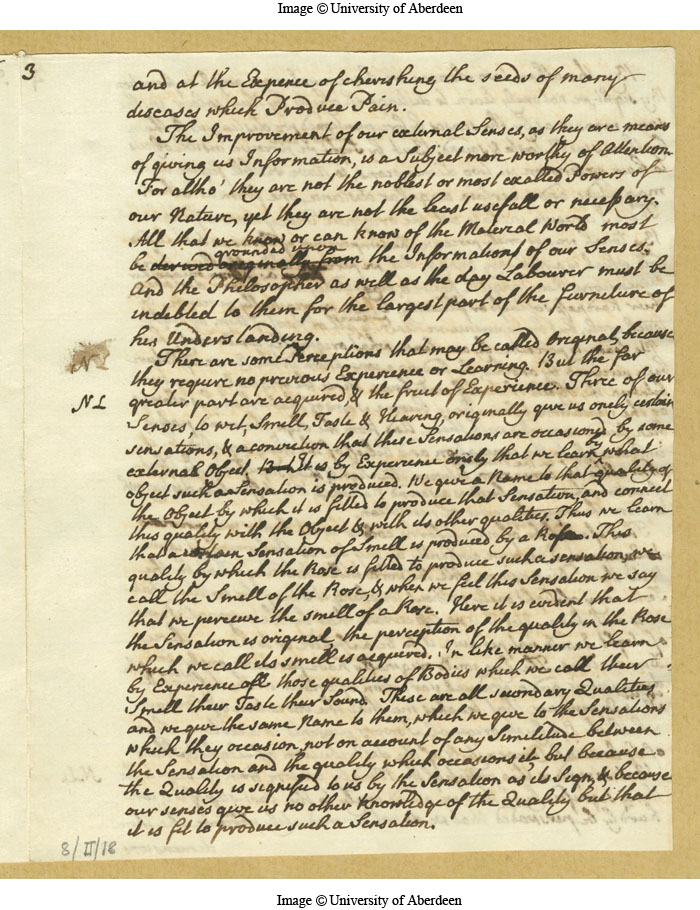 Image © University of Aberdeen
3
and at the Expence of cherishing the seeds of many
diseases which Produce Pain.
The Improvement of our external Senses, as they are means
of giving us Information, is a Subject more worthy of Attention.
For altho' they are not the noblest or most exalted Powers of
our Nature, yet they are not the least usefull or necessary.
All that we know or can know of the Material World most
grounded upon
be derived originally from the Information of our Senses.
And the Philosopher as well as the day Labourer must be
indebted to them for the largest part of the furniture of
his Understanding.
There are some Perceptions that may be called Original, because
they require no previous Experience or Learning. But the far
NL
greater part are acquired, & the fruit of Experience. Three of our
Senses, to wit, Smell, Taste & Hearing, originally give us onely certain
sensations, & a conviction that these Sensations are occasioned by some
external Object. But It is by Experience onely that we learn what
object such a Sensation is produced. We give a Name to that quality of
by
the Object by which it is fitted to produce that Sensation, and connect
this quality with the Object & with its other qualities. Thus we learn
that a certain Sensation of Smell is produced by a Rose. This
quality by which the Rose is fitted to produce such a sensation, we
call the Smell of the Rose, & when we feel this Sensation we say
that we perceive the smell of a Rose. Here it is evident that
the Sensation is original, the perception of the quality in the Rose
which we call its smell is acquired. In like manner we learn
by Experience all those qualities of Bodies which we call their
Smell their Taste their Sound. These are all secondary Qualities
and we give the same Name to them, which we give to the Sensations
which they occasion, not on account of any Similitude between
the Sensation and the quality which occasions it but because
the Quality is signified to us by the Sensation as its Sign, & because
our senses give us no other Knowledge of the Quality but that
it is fit to produce such a Sensation.
8/II/18
Image © University of Aberdeen